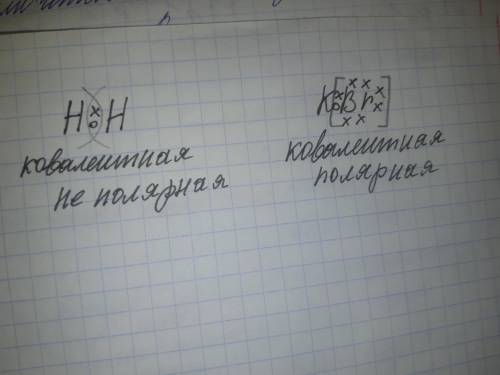 H : H
K[Br]
ковалентная
не полярная
ковалентная
полярная